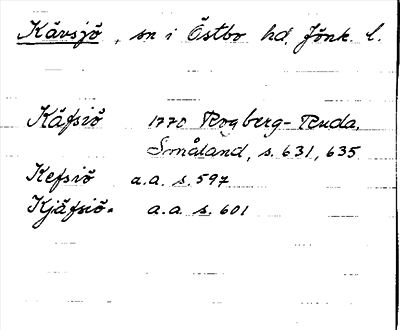 Kävsjö, sn i Östbo hd, Jönk. l.
Käfsiö 1770 Rogberg-Ruda,
Småland, s. 631, 635
Kefsiö a.a. s. 597
Kjäfsiö- a.a. s. 601